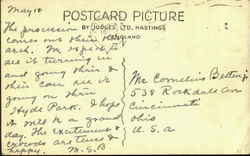 May 10
POSTCARD PICTURE
BY JUDGES, LTD, HASTINGS
ENGLAND
The procession
comes out their
arch. We expect to
see it turning in
and going their &
then can see it
going on thru
Hyde Park. I hope
it will be a grand
day. The excitement &
crowds are
happy. M.S.B
Mr Cornelius
538 Rockdale
Cincinnati
Ohio
U.S.A